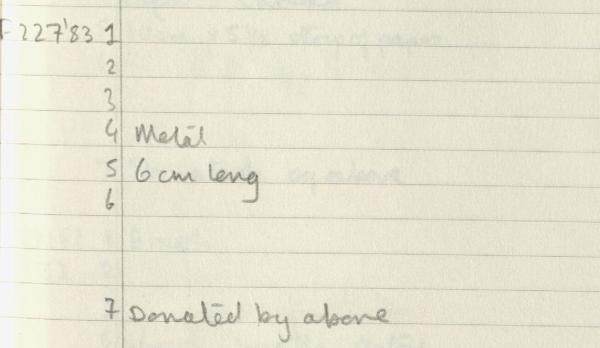 F 227'83 1
2
3
4 Metal
5 6 cm long
6
7 Donated by above